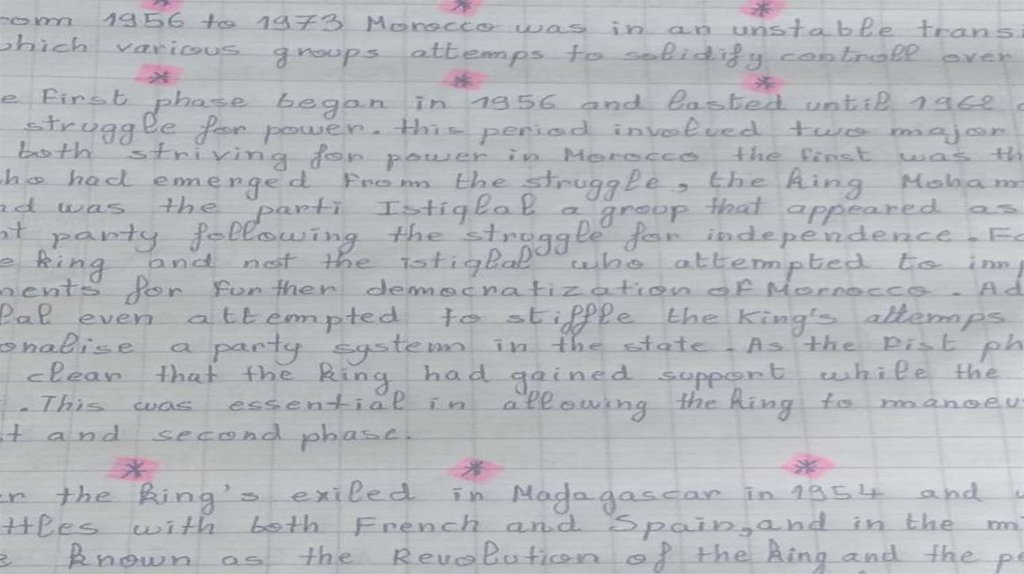 rom 1956 to 1973 Morocco was in an unstable transi
which various groups attemps to solidify controll over
e First phase began in 1956 and lasted until 1962
struggle for power. this period involved two major
both striving for power in Morocco the first was th
ho had emerged From the struggle, the king Moham
nd was the parti Istiqlal a group that appeared as
nt party following the struggle for independence. Fo
e king and not the istiqlal who attempted to imp
ments for further democratization of Morrocco. Ad
lal even attempted to stiffle the King's attemps
onalise a party system in the state. As the Rist ph
clear that the king had gained support while the
. This was essential in allowing the king to manoeu
t and second phase.
er the king's exiled in Madagascar in 1954 and
ttles with both French and Spain, and in the mi
e known as the Revolution of the king and the pe